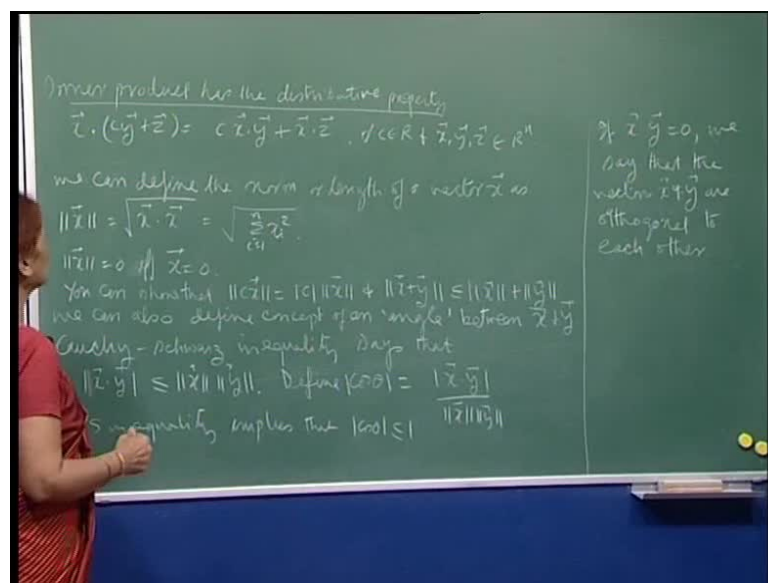 Inner product has the distributive property
x⃗ · (cy⃗ + z⃗) = c x⃗·y⃗ + x⃗·z⃗ , if c∈R & x⃗, y⃗, z⃗ ∈ Rⁿ
we can define the norm or length of a vector x⃗ as
||x⃗|| = √(x⃗ · x⃗) = √(∑ᵢ₌₁ⁿ xᵢ²) .
||x⃗|| = 0 iff x⃗ = 0.
You can show that ||cx⃗|| = |c| ||x⃗|| & ||x⃗+y⃗|| ≤ ||x⃗|| + ||y⃗||
we can also define concept of an 'angle' between x⃗ & y⃗
Cauchy-Schwarz inequality says that
|x⃗·y⃗| ≤ ||x⃗|| ||y⃗||. Define |cosθ| = |x⃗·y⃗| / ||x⃗|| ||y⃗||
S inequality implies that |cosθ| ≤ 1
If x⃗ y⃗ = 0, we
say that the
vectors x⃗ & y⃗ are
orthogonal to
each other